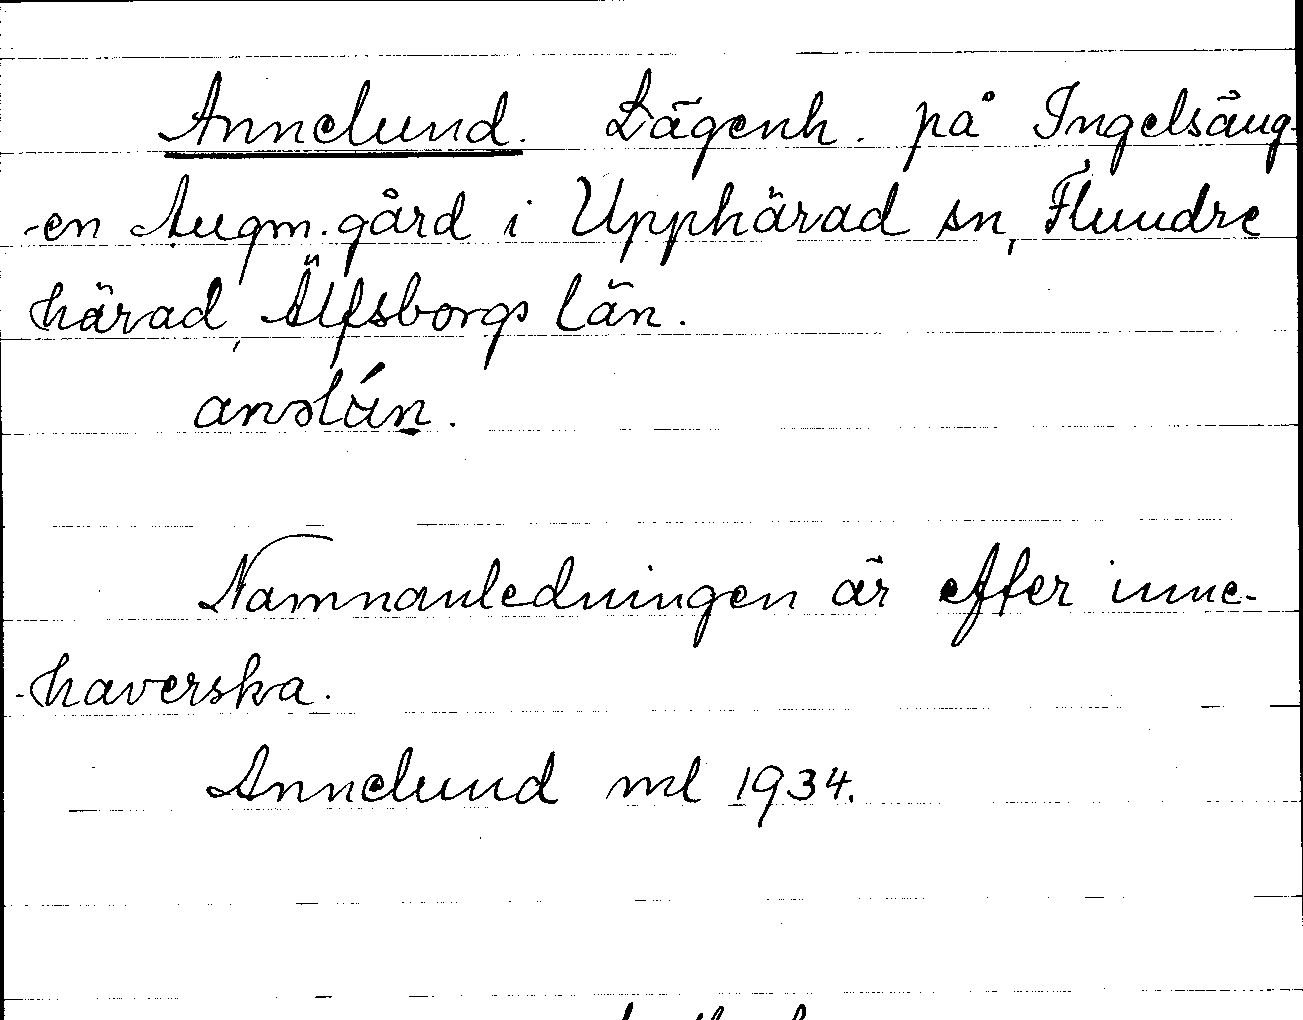 Annelund. Lägenh. på Ingelsäng-
-en Augm. gård i Upphärad sn, Flundre
härad, Älfsborgs län.
Namnanledningen är efter inne-
-haverska.
Annelund ml 1934.